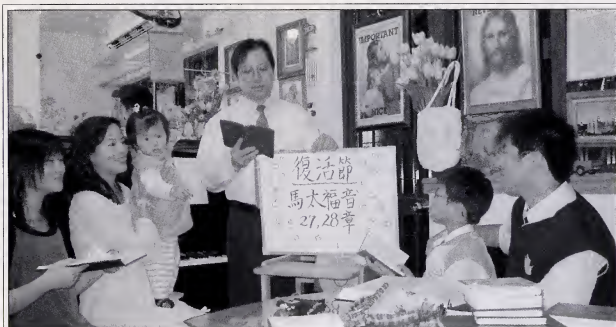 IMPORTANT
復活節
馬太福音
27,28章